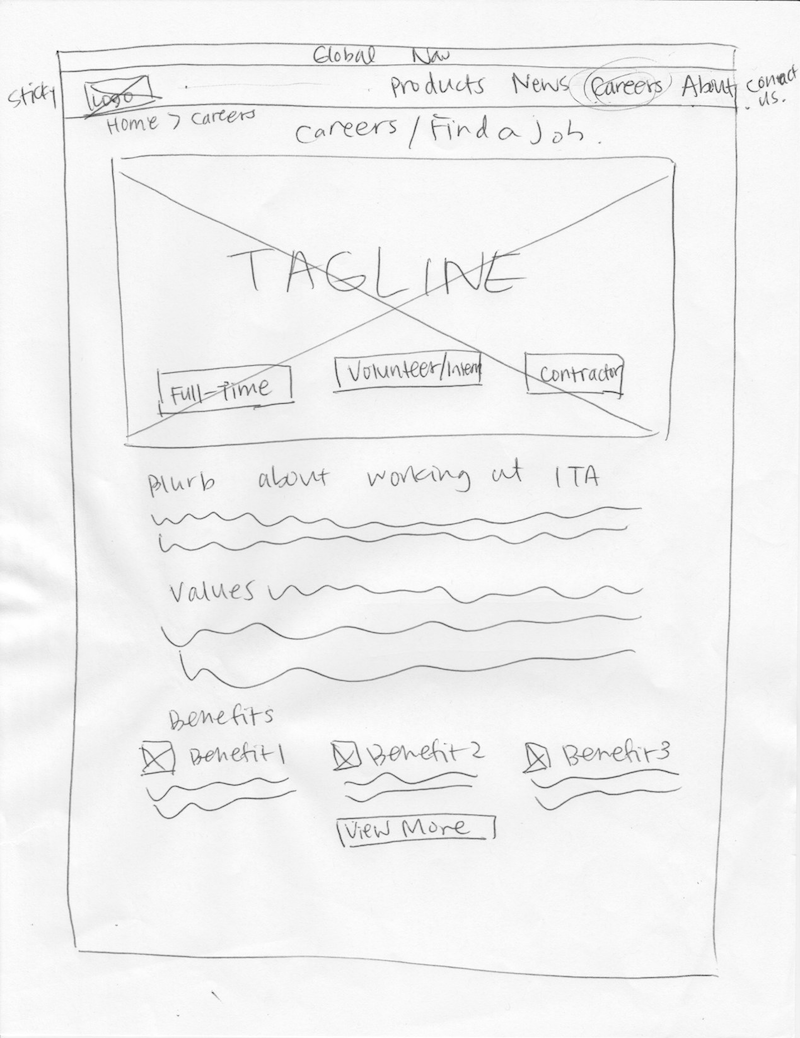 Global Nav
sticky
Logo
Products News Careers About contact us.
Home > Careers
Careers / Find a job.
TAGLINE
Full-Time Volunteer/Intern Contractor
Blurb about working at ITA
Values
Benefits
Benefit 1 Benefit 2 Benefit 3
View More